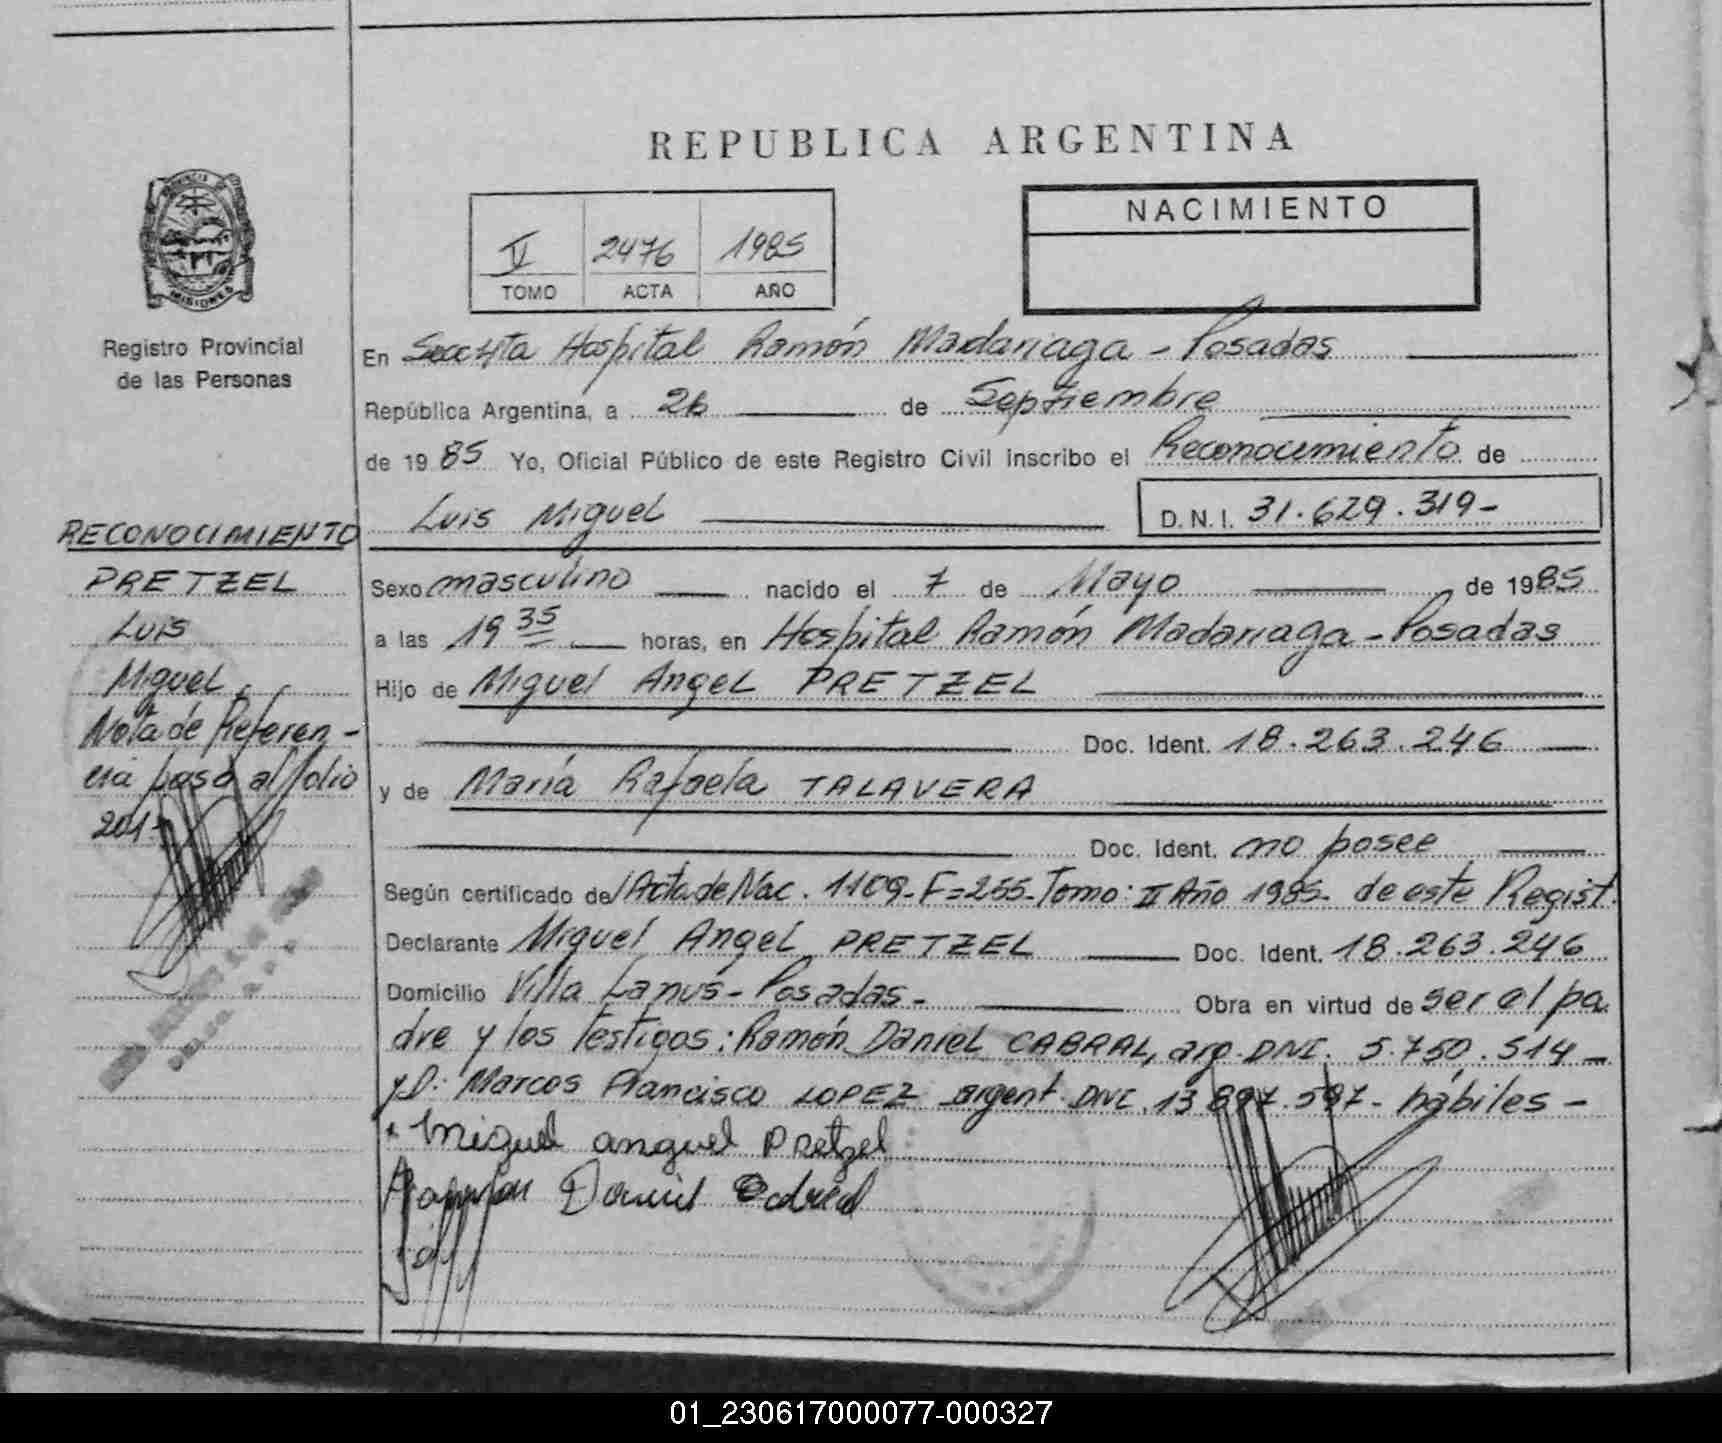 REPUBLICA ARGENTINA
PROVINCIA DE
MISIONES
Registro Provincial
de las Personas
V 2476 1985
TOMO ACTA AÑO
NACIMIENTO
En Hospital Ramón Madariaga - Posadas
República Argentina, a 26 de Septiembre
de 1985 Yo, Oficial Público de este Registro Civil inscribo el Reconocimiento de
Luis Miguel D.N.I. 31.629.319-
RECONOCIMIENTO
PRETZEL
Luis
Miguel
Nota de Referen-
cia pasa al folio
201-
Sexo masculino nacido el 7 de Mayo de 1985
a las 19 35 horas, en Hospital Ramón Madariaga - Posadas
Hijo de Miguel Angel PRETZEL
Doc. Ident. 18.263.246
y de María Rafaela TALAVERA
Doc. Ident. no posee
Según certificado de/ Acta de Nac. 1109- F=255- Tomo: II Año 1985- de este Regist.
Declarante Miguel Angel PRETZEL Doc. Ident. 18.263.246
Domicilio Villa Lanús - Posadas - Obra en virtud de ser el pa
dre y los testigos: Ramón Daniel CABRAL, arg. DNI. 5.750.514 -
y D: Marcos Francisco LOPEZ argent. DNI. 13.897.597- hábiles -
Miguel anguel Pretzel
Daniel
01_230617000077-000327